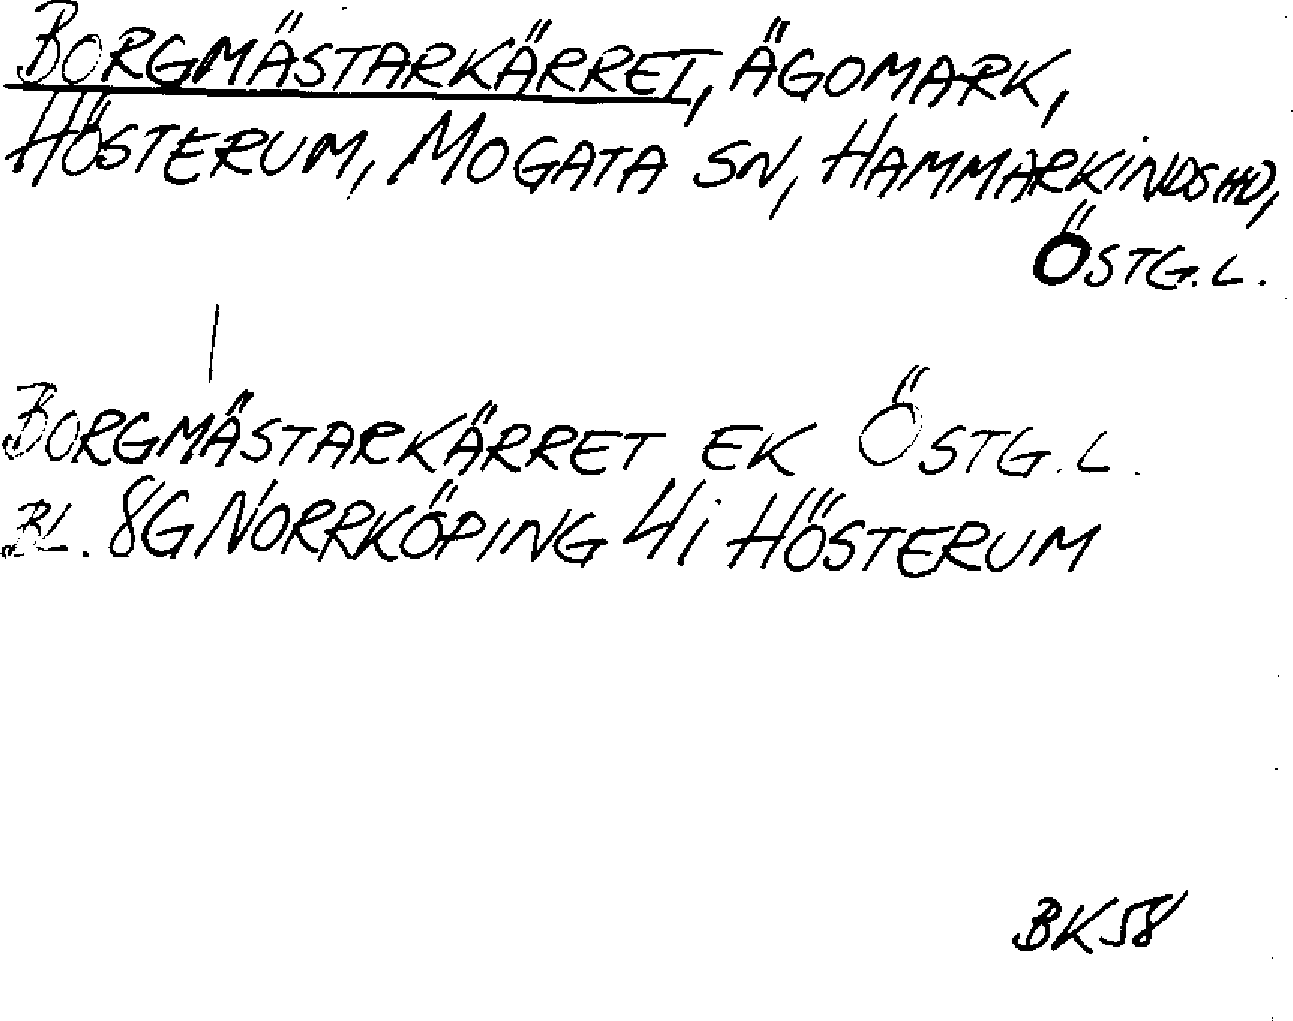 BORGMÄSTARKÄRRET, ÄGOMARK,
HÖSTERUM, MOGATA SN, HAMMARKINDS HD,
ÖSTG.L.
BORGMÄSTARKÄRRET EK ÖSTG.L.
BL. 8G NORRKÖPING 4i HÖSTERUM
BK 58